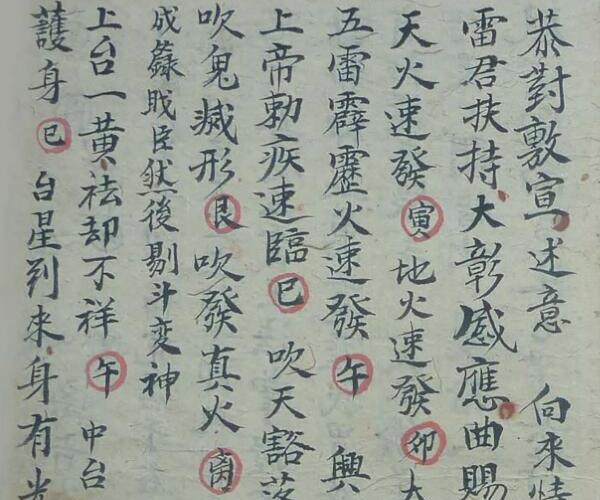 恭對敷宣述意 向來情
雷君扶持大彰感應曲賜
天火速發寅地火速發卯大
五雷霹靂火速發午 興
上帝勅疾速臨巳吹天豁落
吹鬼滅形艮吹發真火離
成籙賤臣然後剔斗变神
上台一黃祛却不祥午中台
護身巳台星到來身有光